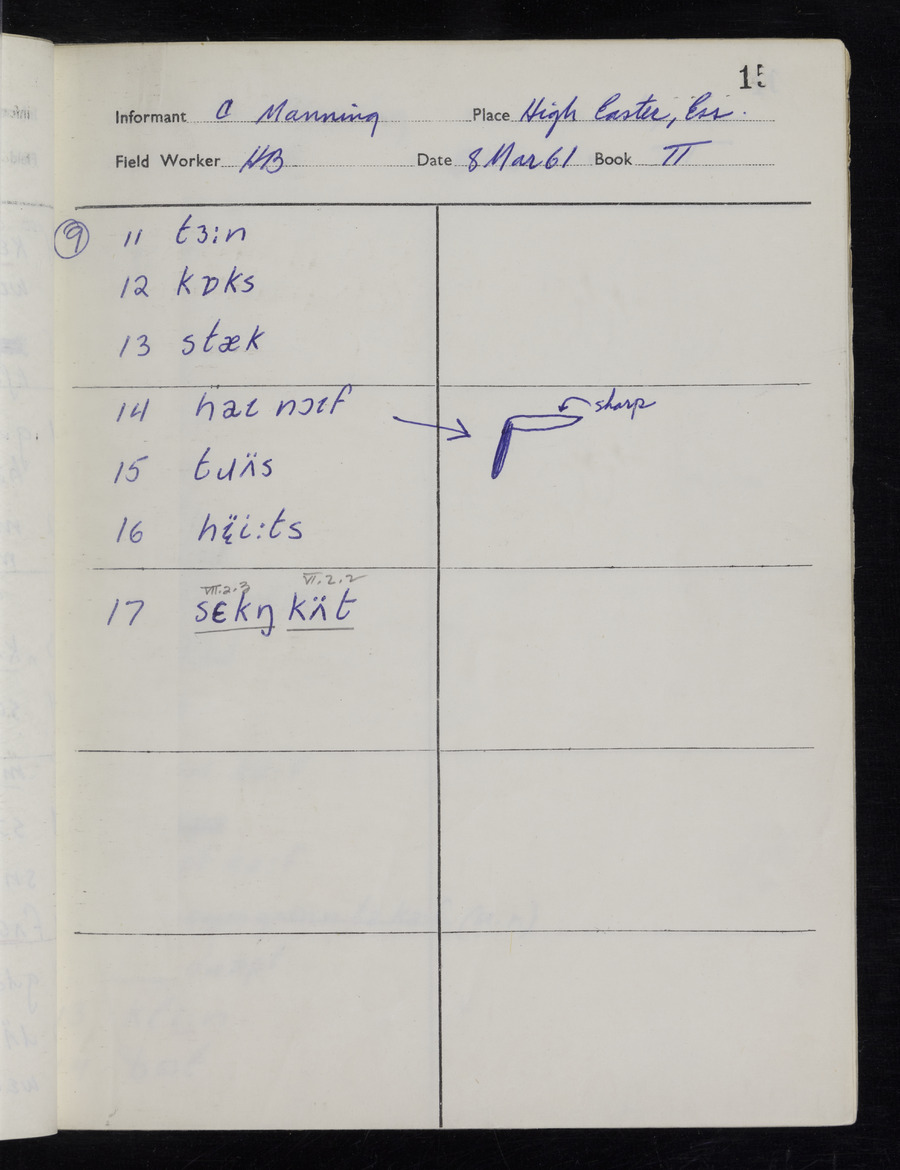 15
Informant C Manning Place High Easter, Ess.
Field Worker HB Date 8 Mar 61 Book II
⑨ 11 tɜːn
12 kɒks
13 stæk
14 həɪ nɔɪf
sharp
15 tɹʌ̈s
16 hɛ̈iːts
VII.2.3 VI.2.2
17 sɛkŋ kʌ̈t